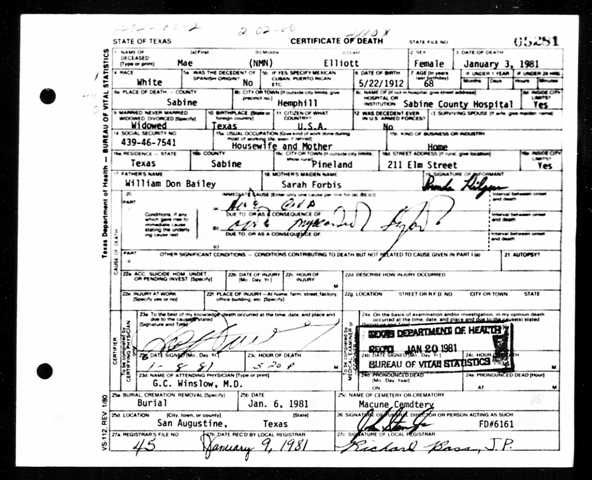 2-02-00
STATE OF TEXAS CERTIFICATE OF DEATH STATE FILE NO. 05281
1. NAME OF DECEASED (Type or print) (a) First Mae (b) Middle (NMN) (c) Last Elliott 2. SEX Female 3. DATE OF DEATH January 3, 1981
4. RACE White 5a. WAS THE DECEDENT OF SPANISH ORIGIN? No 5b. IF YES, SPECIFY MEXICAN, CUBAN, PUERTO RICAN, ETC. 6. DATE OF BIRTH 5/22/1912 7. AGE (In years last birthday) 68 IF UNDER 1 YEAR Months Days IF UNDER 24 HRS. Hours Minutes
8a. PLACE OF DEATH - COUNTY Sabine 8b. CITY OR TOWN (If outside city limits, give precinct no.) Hemphill 8c. NAME OF (If not in hospital, give street address) HOSPITAL OR INSTITUTION Sabine County Hospital 8d. INSIDE CITY LIMITS? Yes
9. MARRIED, NEVER MARRIED, WIDOWED, DIVORCED (Specify) Widowed 10. BIRTHPLACE (State or foreign country) Texas 11. CITIZEN OF WHAT COUNTRY? U.S.A. 12. WAS DECEDENT EVER IN U.S. ARMED FORCES? No 13. SURVIVING SPOUSE (If wife, give maiden name)
14. SOCIAL SECURITY NO. 439-46-7541 15a. USUAL OCCUPATION (Give kind of work done during most of working life, even if retired) Housewife and Mother KIND OF BUSINESS OR INDUSTRY Home
16a. RESIDENCE - STATE Texas 16b. COUNTY Sabine 16c. CITY OR TOWN (If outside city limits, show rural) Pineland 16d. STREET ADDRESS (If rural, give location) 211 Elm Street INSIDE CITY LIMITS? Yes
17. FATHER'S NAME William Don Bailey 18. MOTHER'S MAIDEN NAME Sarah Forbis SIGNATURE OF INFORMANT
PART I IMMEDIATE CAUSE (Enter only one cause per line for (a), (b), and (c)) Interval between onset and death
Conditions, if any which gave rise to immediate cause stating the underlying cause last
DUE TO, OR AS A CONSEQUENCE OF: Interval between onset and death
DUE TO, OR AS A CONSEQUENCE OF: Interval between onset and death
PART II OTHER SIGNIFICANT CONDITIONS - CONDITIONS CONTRIBUTING TO DEATH BUT NOT RELATED TO CAUSE GIVEN IN PART I (a) 21. AUTOPSY?
22a. ACC, SUICIDE, HOM, UNDET, OR PENDING INVEST. (Specify) 22b. DATE OF INJURY (Mo., Day, Yr.) 22c. HOUR OF INJURY M 22d. DESCRIBE HOW INJURY OCCURRED
22e. INJURY AT WORK (Specify yes or no) 22f. PLACE OF INJURY - At home, farm, street, factory, office building, etc. (Specify) 22g. LOCATION STREET OR R.F.D. NO. CITY OR TOWN STATE
23a. To the best of my knowledge, death occurred at the time, date, and place and due to the cause(s) stated (Signature and Title) 24a. On the basis of examination and/or investigation, in my opinion death occurred at the time, date and place and due to the cause(s) stated
23b. DATE SIGNED (Mo., Day, Yr.) 1-8-81 23c. HOUR OF DEATH 5:20 P 24b. DATE SIGNED (Mo., Day, Yr.) 24c. HOUR OF DEATH
TEXAS DEPARTMENT OF HEALTH
REC'D JAN 20 1981
BUREAU OF VITAL STATISTICS
23d. NAME OF ATTENDING PHYSICIAN (Type or print) G.C. Winslow, M.D. 24d. PRONOUNCED DEAD (Mo., Day, Year) ON 24e. PRONOUNCED DEAD (Hour) AT M
25a. BURIAL, CREMATION, REMOVAL (Specify) Burial 25b. DATE Jan. 6, 1981 25c. NAME OF CEMETERY OR CREMATORY Macune Cemdtery
25d. LOCATION (City, town, or county) San Augustine, (State) Texas 26. SIGNATURE OF FUNERAL DIRECTOR OR PERSON ACTING AS SUCH FD#6161
27a. REGISTRAR'S FILE NO. 45 27b. DATE REC'D BY LOCAL REGISTRAR January 9, 1981 27c. SIGNATURE OF LOCAL REGISTRAR Richard Bass, J.P.
Texas Department of Health — BUREAU OF VITAL STATISTICS
CAUSE OF DEATH
CERTIFIER
VS-112, REV. 1/80